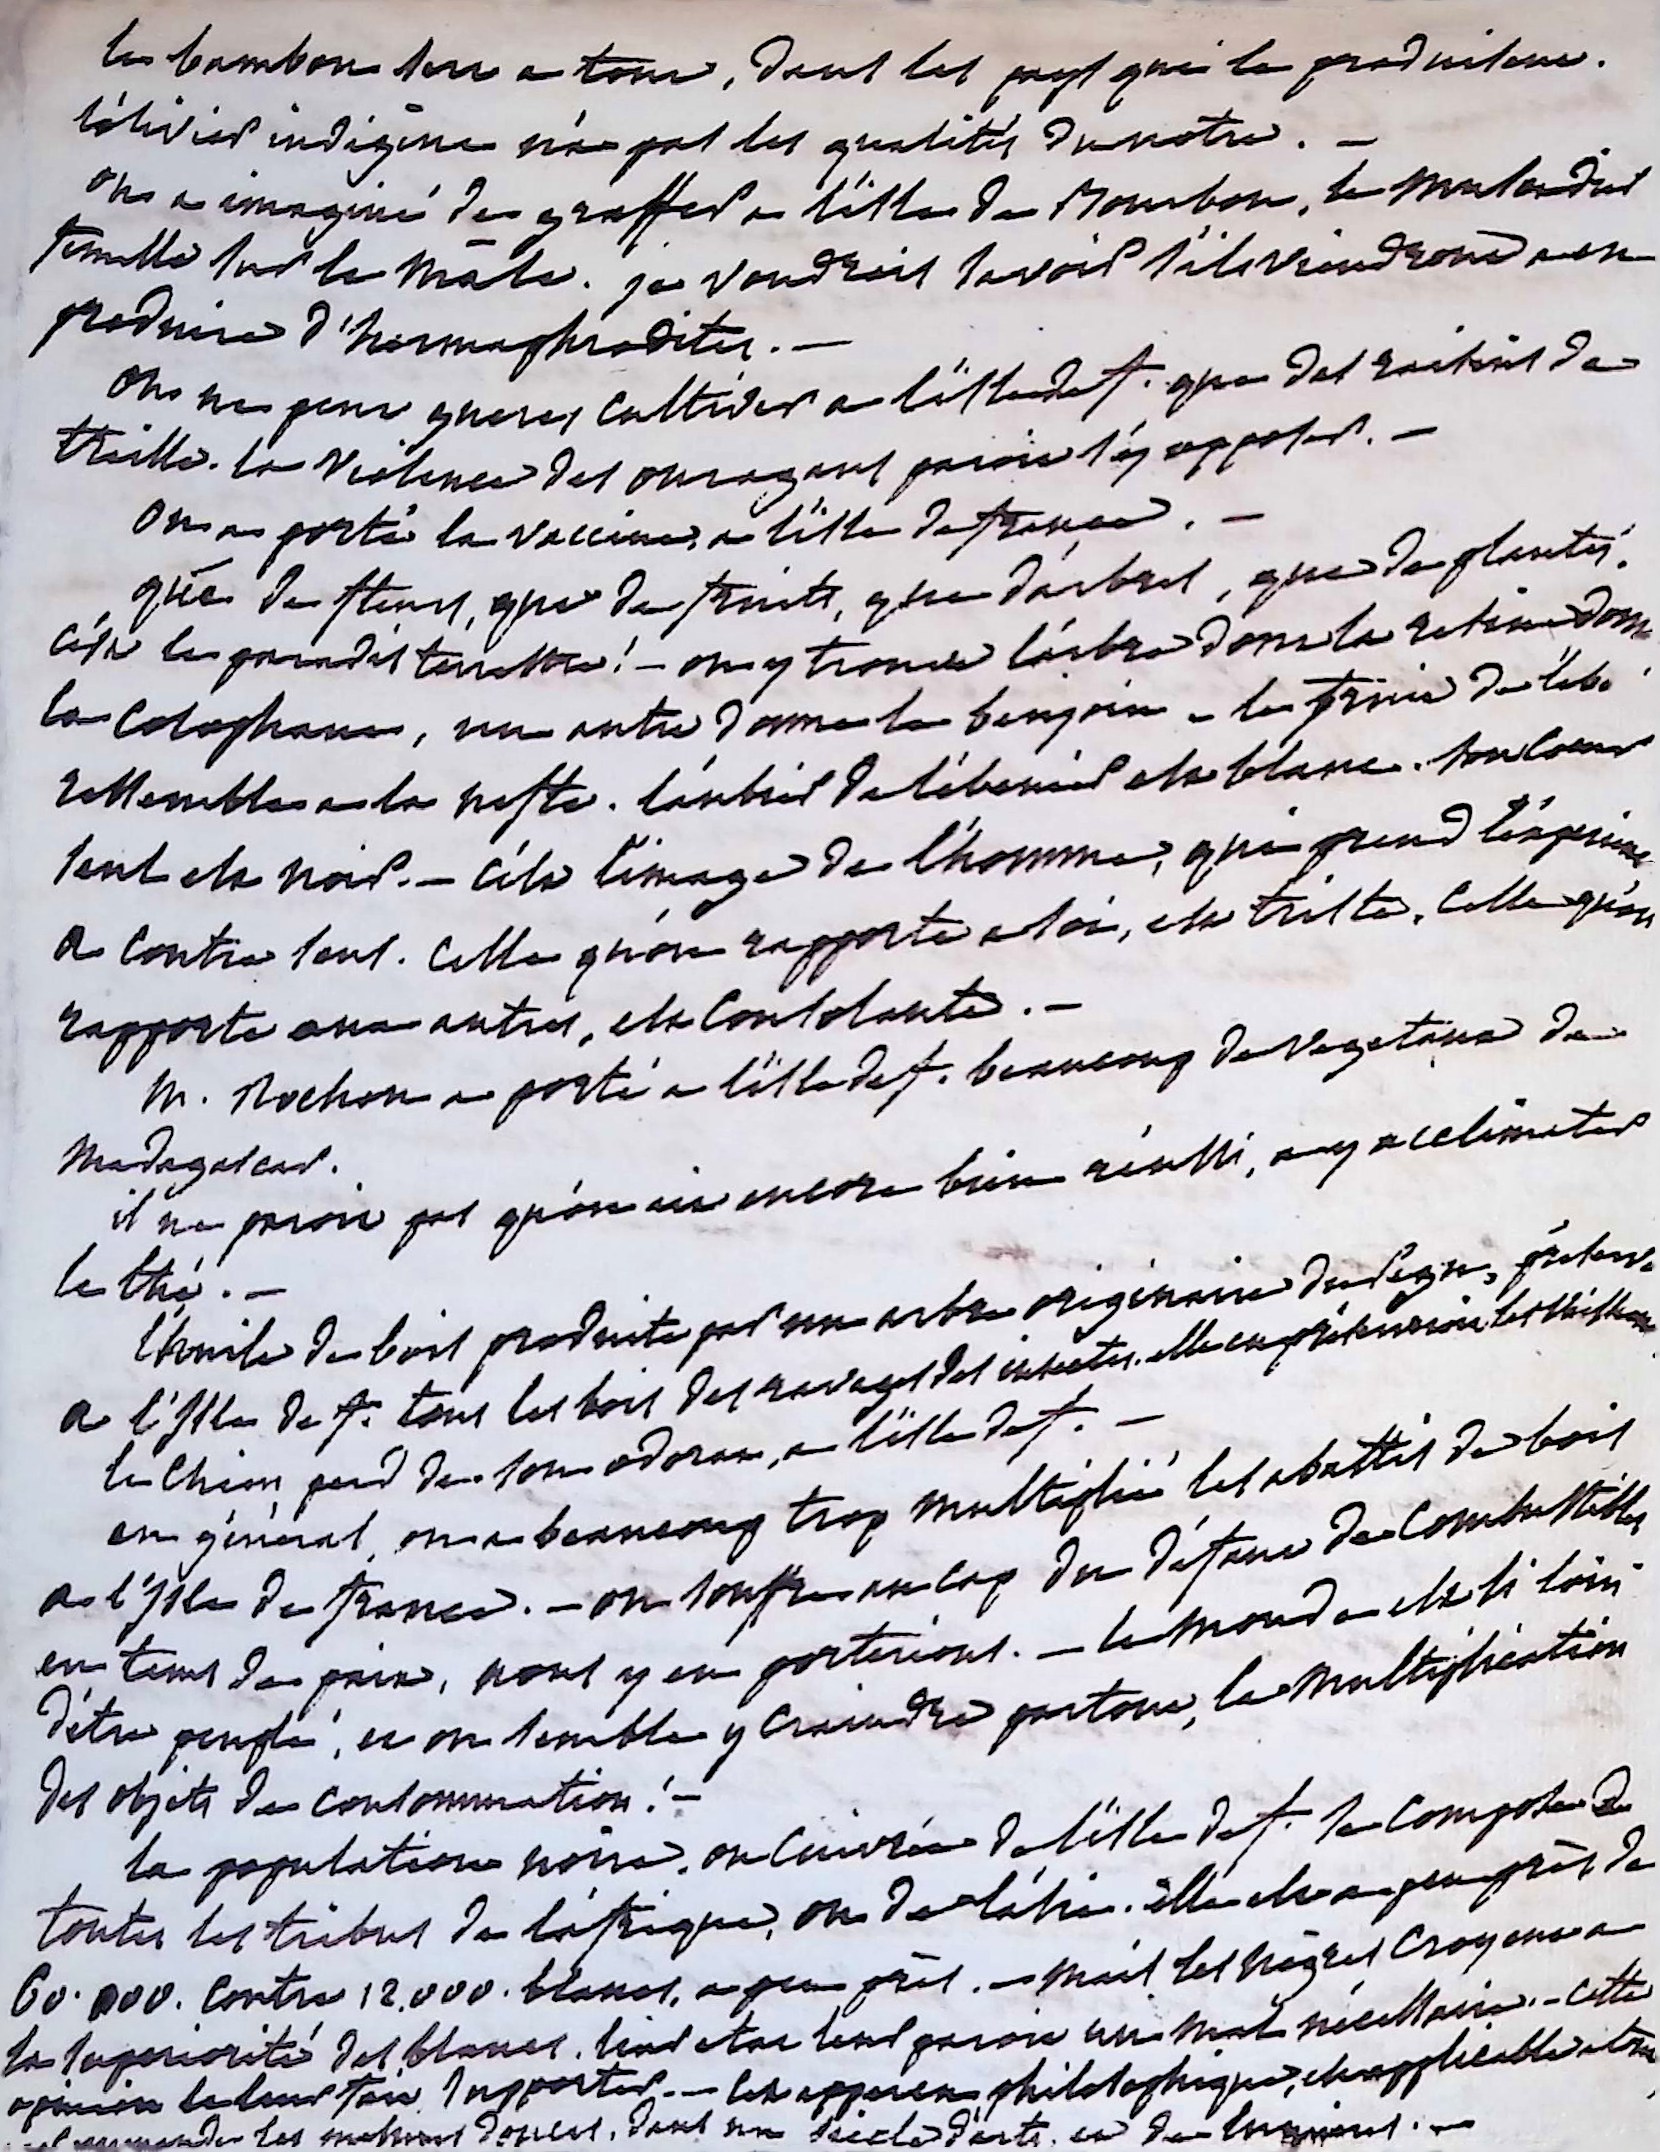 le bambou sert a tout, dans les pays qui le produisent.
l'olivier indigène n'a pas les qualités du notre. —
on a imaginé de greffer a l'isle de Bourbon, le muscadier
femelle sur le mâle. je voudrois savoir s'ils viendront a en
produire d'hermaphrodites. —
on ne peut gueres cultiver a l'isle de f. que des raisins de
treille. la violence des ouragans paroit s'y opposer. —
on a porté la vaccine, a l'isle de france. —
que de fleurs, que de fruits, que d'arbres, que de plantes.
c'est le paradis terrestre! — on y trouve l'arbre dont la resine donne
la colophane, un autre donne le benjoin — le fruit de l'ébé
ressemble a la nefle. l'aubier de l'ébenier est blanc. son coeur
seul est noir. — c'est l'image de l'homme, qui prend l'experience
a contre sens. celle qu'on rapporte a soi, est triste, celle qu'on
rapporte aux autres, est consolante. —
M. Rochon a porté a l'isle de f. beaucoup de vegetaux de
Madagascar.
il ne paroit pas qu'on ait encore bien réussi, a y acclimater
le thé. —
l'huile de bois produite par un arbre originaire du Pegu, préserve
a l'Isle de f. tous les bois des ravages des insectes. elle en préserveroit les vaisseaux.
le chien perd de son odorat, a l'isle de f. —
en général, on a beaucoup trop multiplié les abattis de bois
a l'Isle de france. — on souffre au cap du défaut de combustibles
en tems de paix, nous y en porterions. — le monde est si loin
d'être peuplé, et on semble y craindre partout, la multiplication
des objets de consommation! —
la population noire, ou cuivrée de l'isle de f. se compose de
toutes les tribus de l'afrique, ou de l'asie. elle est a peu près de
60.000. contre 12.000. blancs, a peu près. — mais les nègres croyent a
la superiorité des blancs. leur etat leur paroit un mal nécessaire. — cette
opinion le leur fait supporter. — cet apperçu philosophique, est applicable a tout
les moeurs douces, dans un siècle d'arts, et de lumieres. —